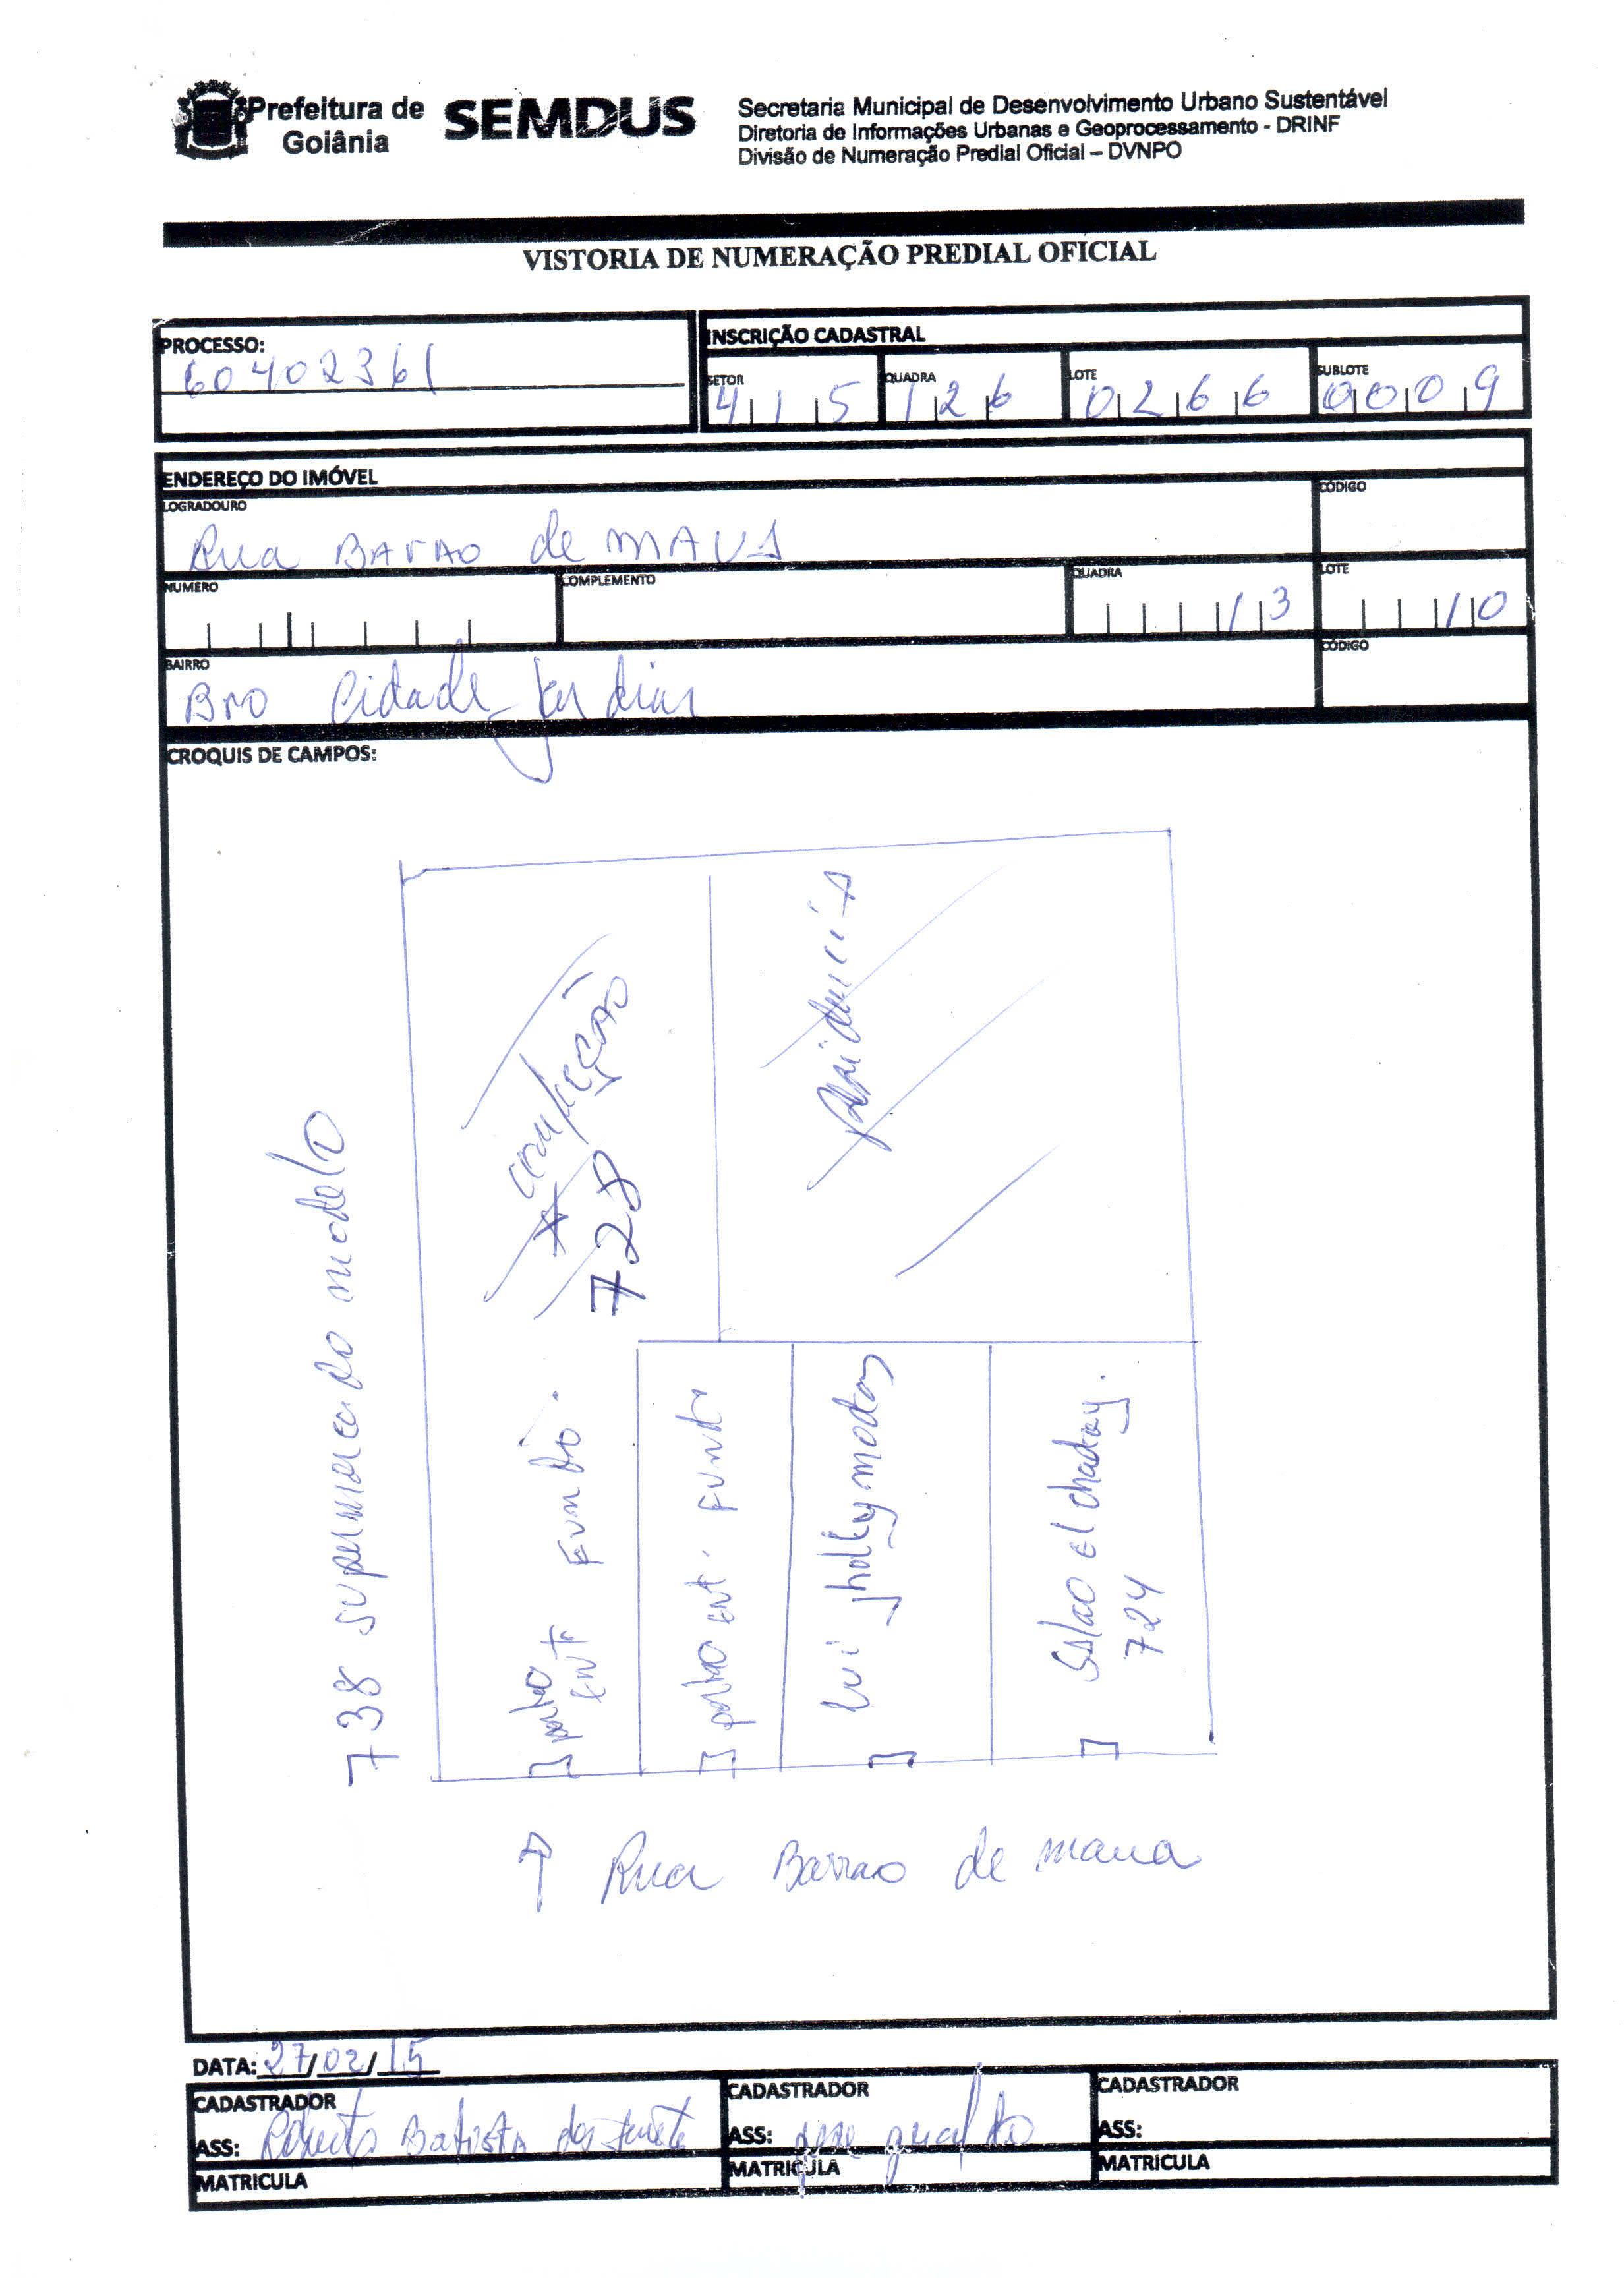 Prefeitura de
Goiânia
SEMDUS
Secretaria Municipal de Desenvolvimento Urbano Sustentável
Diretoria de Informações Urbanas e Geoprocessamento - DRINF
Divisão de Numeração Predial Oficial – DVNPO
VISTORIA DE NUMERAÇÃO PREDIAL OFICIAL
PROCESSO:
60402361
INSCRIÇÃO CADASTRAL
SETOR
415
QUADRA
126
LOTE
0266
SUBLOTE
0009
ENDEREÇO DO IMÓVEL
LOGRADOURO
Rua BArAO de MAUA
CÓDIGO
NUMERO
COMPLEMENTO
QUADRA
13
LOTE
10
BAIRRO
Bro Cidade Jardim
CÓDIGO
CROQUIS DE CAMPOS:
738 supermercado modelo
728
portão
ent
Fundo.
portão ent. Fundo
jholly modas
Salao El chaday.
724
Rua Barrao de maua
DATA: 27/02/15
CADASTRADOR
ASS: Batista
MATRICULA
CADASTRADOR
ASS:
MATRICULA
CADASTRADOR
ASS:
MATRICULA